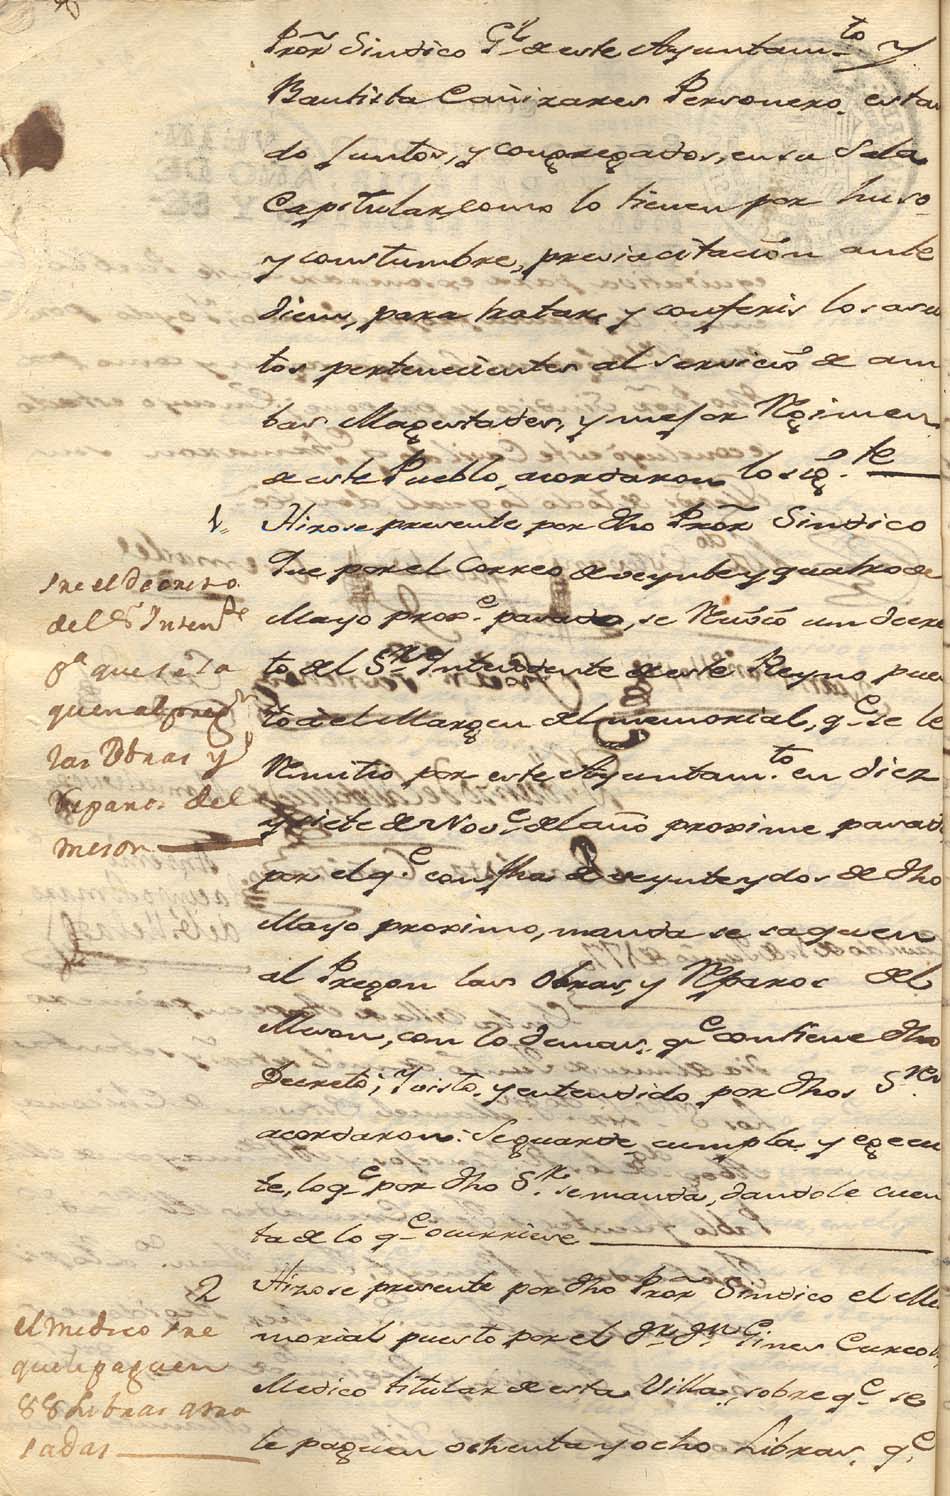 Pror. Sindico Gl. de este Ayuntam.to y
Bautista Cañizares Personero, estan
do juntos, y congregados, en su Sala
Capitular, como lo tienen por huso
y constumbre, previa citación ante
diem, para tratar, y conferir los asun
tos pertenecientes al servicio de am
bas Magestades, y mejor Regimen
de este Pueblo, acordaron lo sig.te
1. Hizose presente por dho Pror. Sindico
que por el Correo de veynte y quatro de
Mayo prox.e pasado, se Recivió un decre
to del S.r Intendente de este Reyno pues
to al Margen del memorial, q.e se le
Remitio por este Ayuntam.to en diez
y siete de Nov.e del año proxime pasado
por el q.e con fha de veynte y dos de dho
Mayo proximo, manda se saquen
al Pregon las obras, y Reparos del
Meson, con lo demas q.e contiene dho
Decreto; Y visto, y entendido por dhos S.res
acordaron: Se guarde, cumpla, y egecu
te, lo q.e por dho S.r se manda, dandole cuen
ta de lo q.e ocurriese
sre el Decreto
del S.r Intend.te
p.a que se sa
quen al pregon
las Obras y
Reparos del
meson
2 Hizose presente por dho Pror. Sindico el Me
morial puesto por el Dr. Dn. Gines
Medico titular de esta Villa, sobre q.e se
le paguen ochenta y ocho Libras, q.e
el medico sre
que le paguen
88 Libras atra
sadas